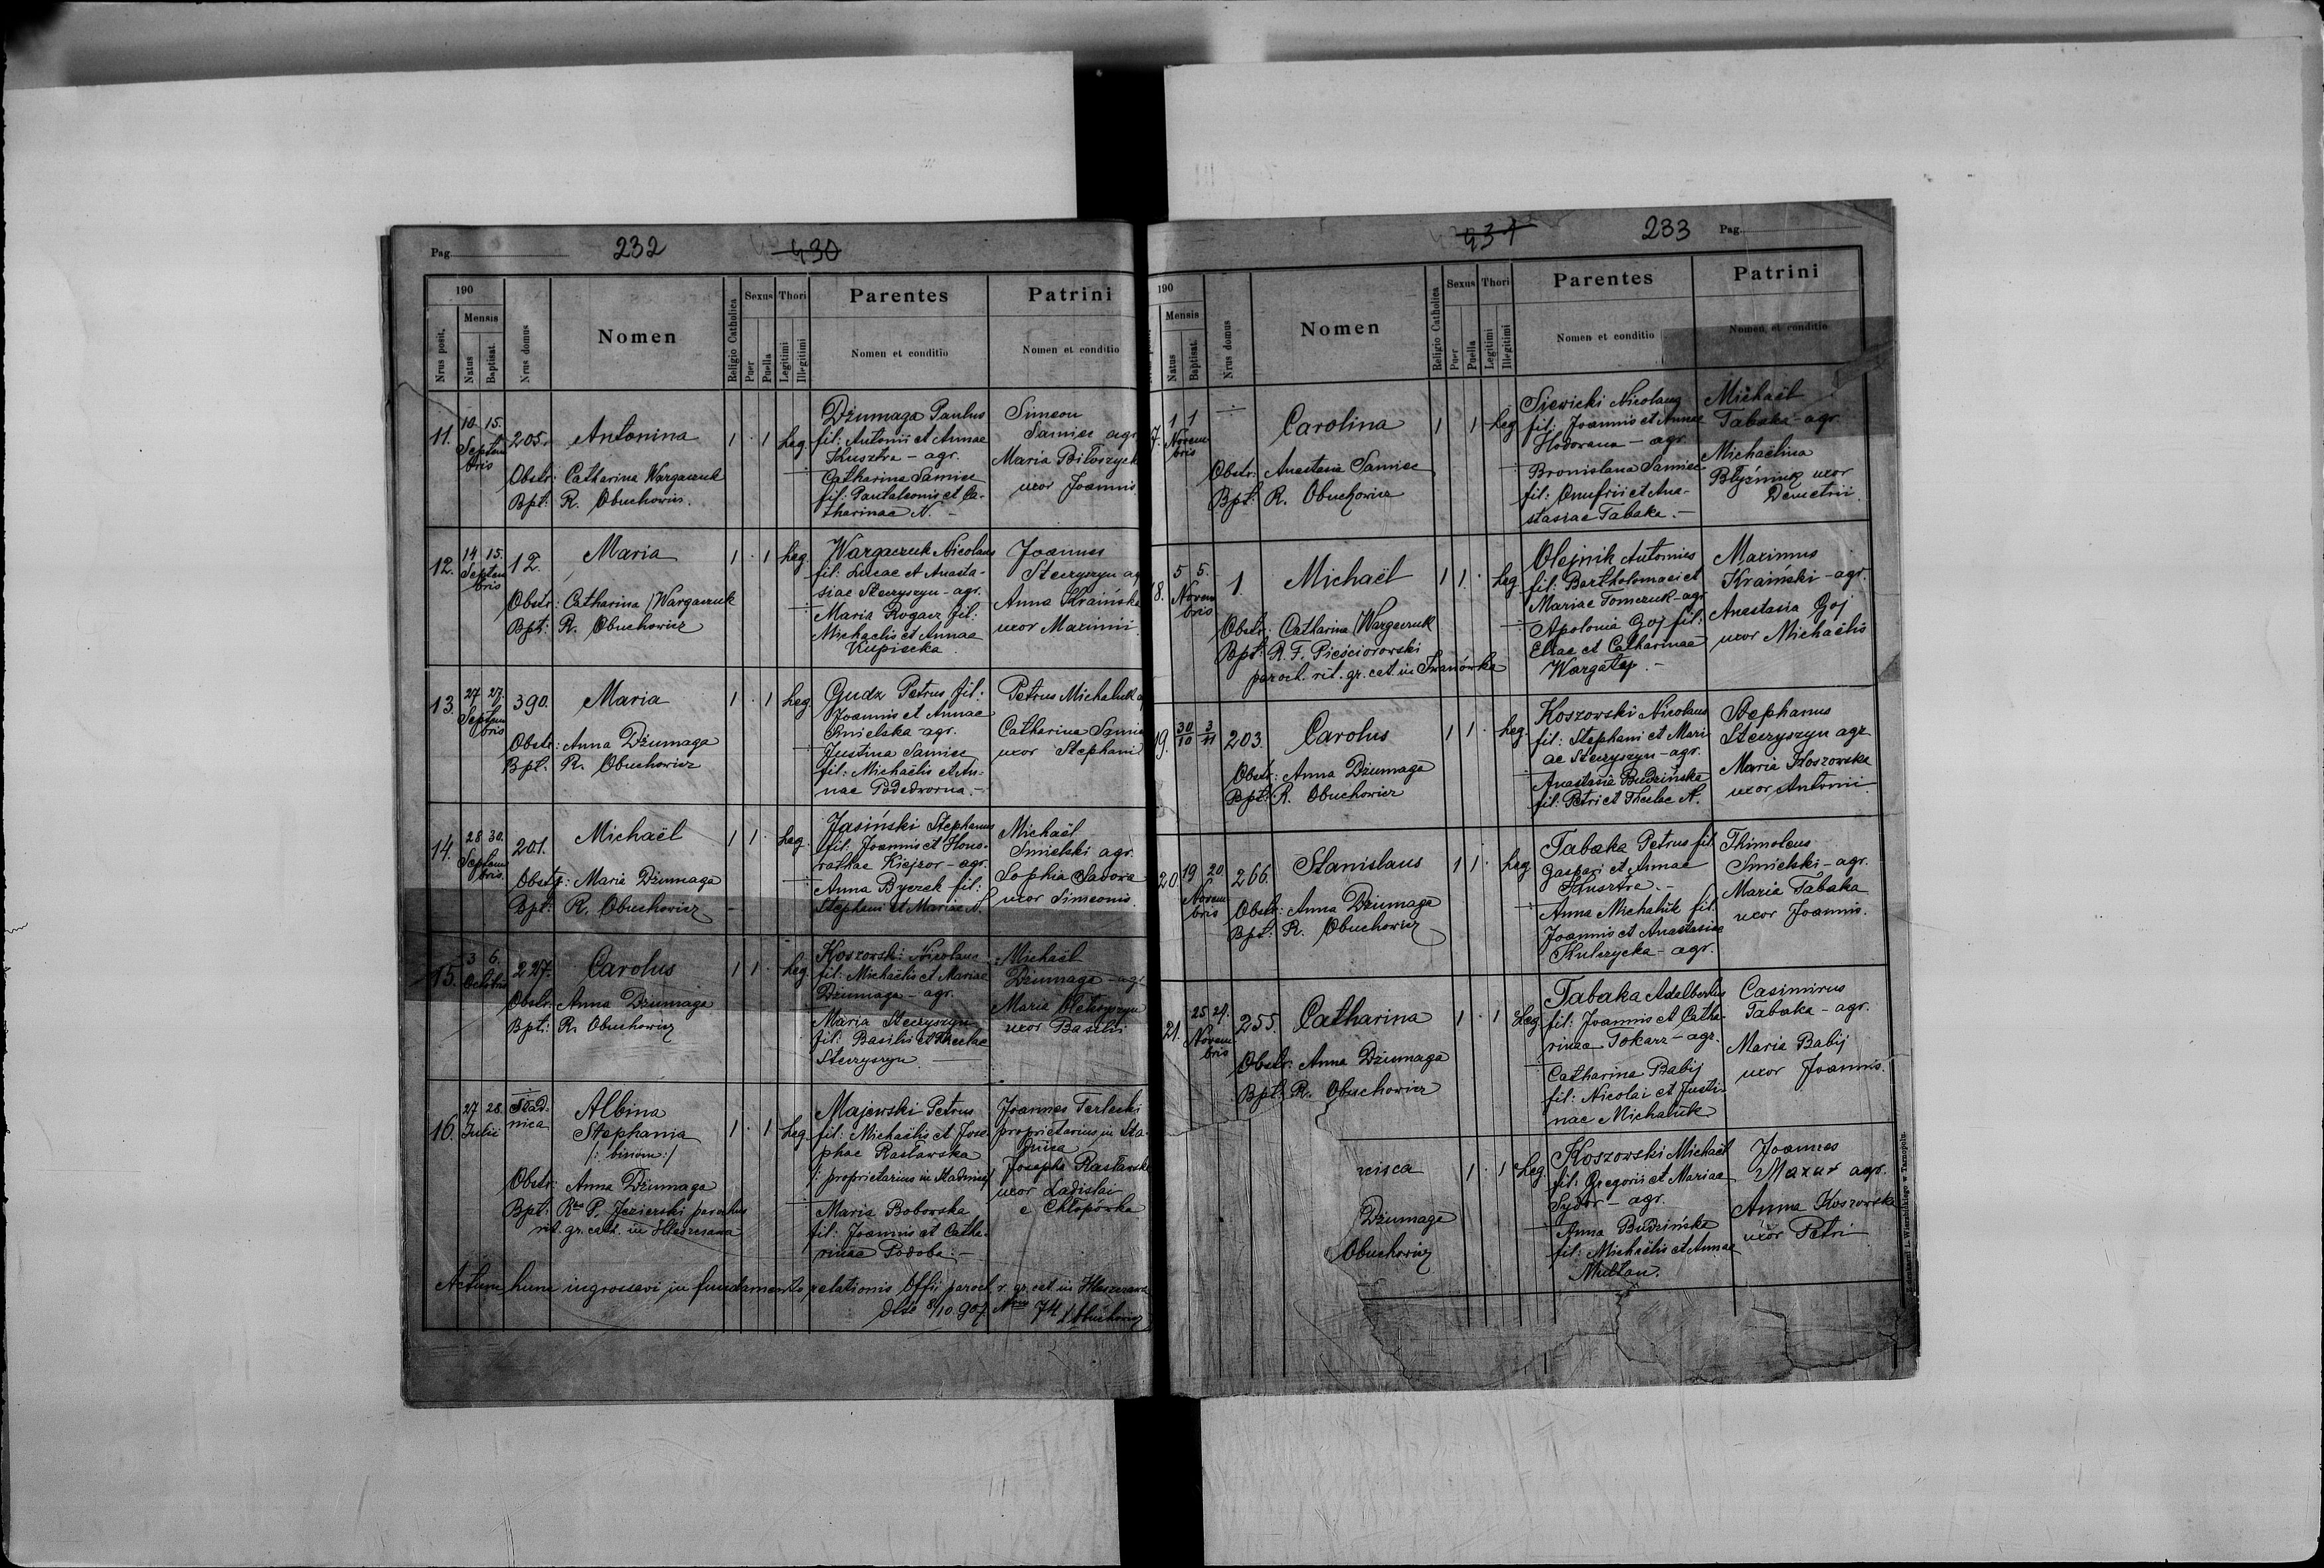 Pag. 232 430
190
Mensis
Nrus posit.
Natus
Baptisat.
Nrus domus
Nomen
Religio Catholica
Sexus
Puer
Puella
Thori
Legitimi
Illegitimi
Parentes
Nomen et conditio
Patrini
Nomen et conditio
11. 10 15. Septem
bris
205. Antonina 1 · 1 Leg.
Obstr: Catharina Wargaczuk
Bpt: R. Obuchowicz.
Dżumaga Paulus
fil: Antonii et Annae
Kusztra - agr.
Catharina Samiec
fil: Pantaleonis et Ca-
tharinae N. -
Simeon
Samiec agr
Maria
uxor Joannis
12. 14 15. Septem
bris
12. Maria 1 · 1 Leg.
Obstr: Catharina Wargaczuk
Bpt: R. Obuchowicz
Wargaczuk Nicolaus
fil: Lucae et Anasta-
siae Steczyszyn - agr.
Maria Rogacz fil:
Michaelis et Annae
Kupiecka.
Joannes
Steczyszyn ag
Anna Kraińska
uxor Maximi
13. 27 27. Septem
bris
390. Maria 1 · 1 Leg
Obstr: Anna Dżumaga
Bpt. R. Obuchowicz
Gudz Petrus fil:
Joannis et Annae
Smielska - agr.
Justina Samiec
fil: Michaëlis et An-
nae Podedworna. -
Petrus Michaluk a
Catharina Samie
uxor Stephani
14. 28 30. Septem
bris.
201. Michaël 1 1 · Leg.
Obstr: Maria Dżumaga
Bpt: R. Obuchowicz
Jasiński Stephanus
fil: Joannis et Hono-
rathae Kiejzor - agr.
Anna Byczek fil:
Stephani et Mariae N.
Michaël
Smielski agr.
Sophia Sadowa
uxor Simeonis
15. 3 6. Octobris
227. Carolus 1 1 · Leg.
Obstr. Anna Dżumaga
Bpt: R. Obuchowicz
Koszowski Nicolaus
fil: Michaëlis et Mariae
Dżumaga - agr.
Maria Steczyszyn
fil: Basilii et Theclae
Steczyszyn.
Michaël
Dżumaga - agr
Maria
uxor Basilii
16. 27 28. Julii
Stad-
nica
Albina
Stephania
/: binom :/
1 · 1 Leg.
Obstr: Anna Dżumaga
Bpt: R. P. Jezierski parochus
rit. gr. cath. in
Majewski Petrus
fil: Michaëlis et Jose-
phae Rasławska
/: proprietarius in Stadnica
Maria Boborska
fil: Joannis et Catha-
rinae Podoba. -
Joannes Terlecki
proprietarius in Sta-
dnica
Josepha Rasławska
uxor Ladislai
e Chłopówka
Actum hunc ingrossavi in fundamento relationis Offii paroch. r. gr. cat. in
ddto 8/10 907. Nro 74. Obuchowicz
431 233 Pag.
190
Mensis
Natus
Baptisat.
Nrus domus
Nomen
Religio Catholica
Sexus
Puer
Puella
Thori
Legitimi
Illegitimi
Parentes
Nomen et conditio
Patrini
Nomen et conditio
7. 1 1 Novem
bris
Carolina 1 1 Leg
Obstr: Anastasia Samiec
Bpt: R. Obuchowicz
Siewicki Nicolaus
fil: Joannis et Annae
Hodorana - agr
Bronislava Samiec
fil: Onufrii et Ana-
stasiae Tabaka. -
Michaël
Tabaka - agr.
Michaëlina
Błyźniuk uxor
Demetrii.
8. 5 5. Novem
bris
1. Michaël 1 1 · Leg
Obstr: Catharina Wargaczuk
Bpt: R. F. Pieściorowski
paroch. rit. gr. cat. in Iwanówka
Olejnik Antonius
fil: Bartholomaei et
Mariae Tomczuk - agr
Apolonia Goj fil:
Eliae et Catharinae
Wargatyj. -
Maximus
Kraiński - agr.
Anastasia Goj
uxor Michaëlis
19. 30/10 3/11
203. Carolus 1 1 · Leg.
Obstr: Anna Dżumaga
Bpt: R. Obuchowicz
Koszowski Nicolaus
fil: Stephani et Mari
ae Steczyszyn - agr.
Anastasia Budzińska
fil: Petri et Theclae N.
Stephanus
Steczyszyn agr
Maria Koszowska
uxor Antonii
20. 19 20 Novem
bris
266. Stanislaus 1 1 · Leg
Obstr: Anna Dżumaga
Bpt: R. Obuchowicz
Tabaka Petrus fil
Gaspari et Annae
Kusztra. -
Anna Michaluk fil.
Joannis et Anastasiae
Kulczycka - agr.
Thimoteus
Smielski - agr.
Maria Tabaka
uxor Joannis.
21. 25 27. Novem
bris
255. Catharina 1 · 1 Leg
Obstr: Anna Dżumaga
Bpt: R. Obuchowicz
Tabaka Adalbertus
fil: Joannis et Catha-
rinae Tokarz - agr.
Catharina Babij
fil: Nicolai et Justi-
nae Michaluk
Casimirus
Tabaka - agr.
Maria Babij
uxor Joannis.
cisca 1 · 1 Leg.
Dżumaga
Obuchowicz
Koszowski Michaël
fil: Gregorii et Mariae
Sydor - agr.
Anna Budzińska
fil: Michaëlis et Annae
Multan.
Joannes
Mazur agr.
Anna Koszowska
uxor Petri
L. Wierzbickiego w Tarnopolu.